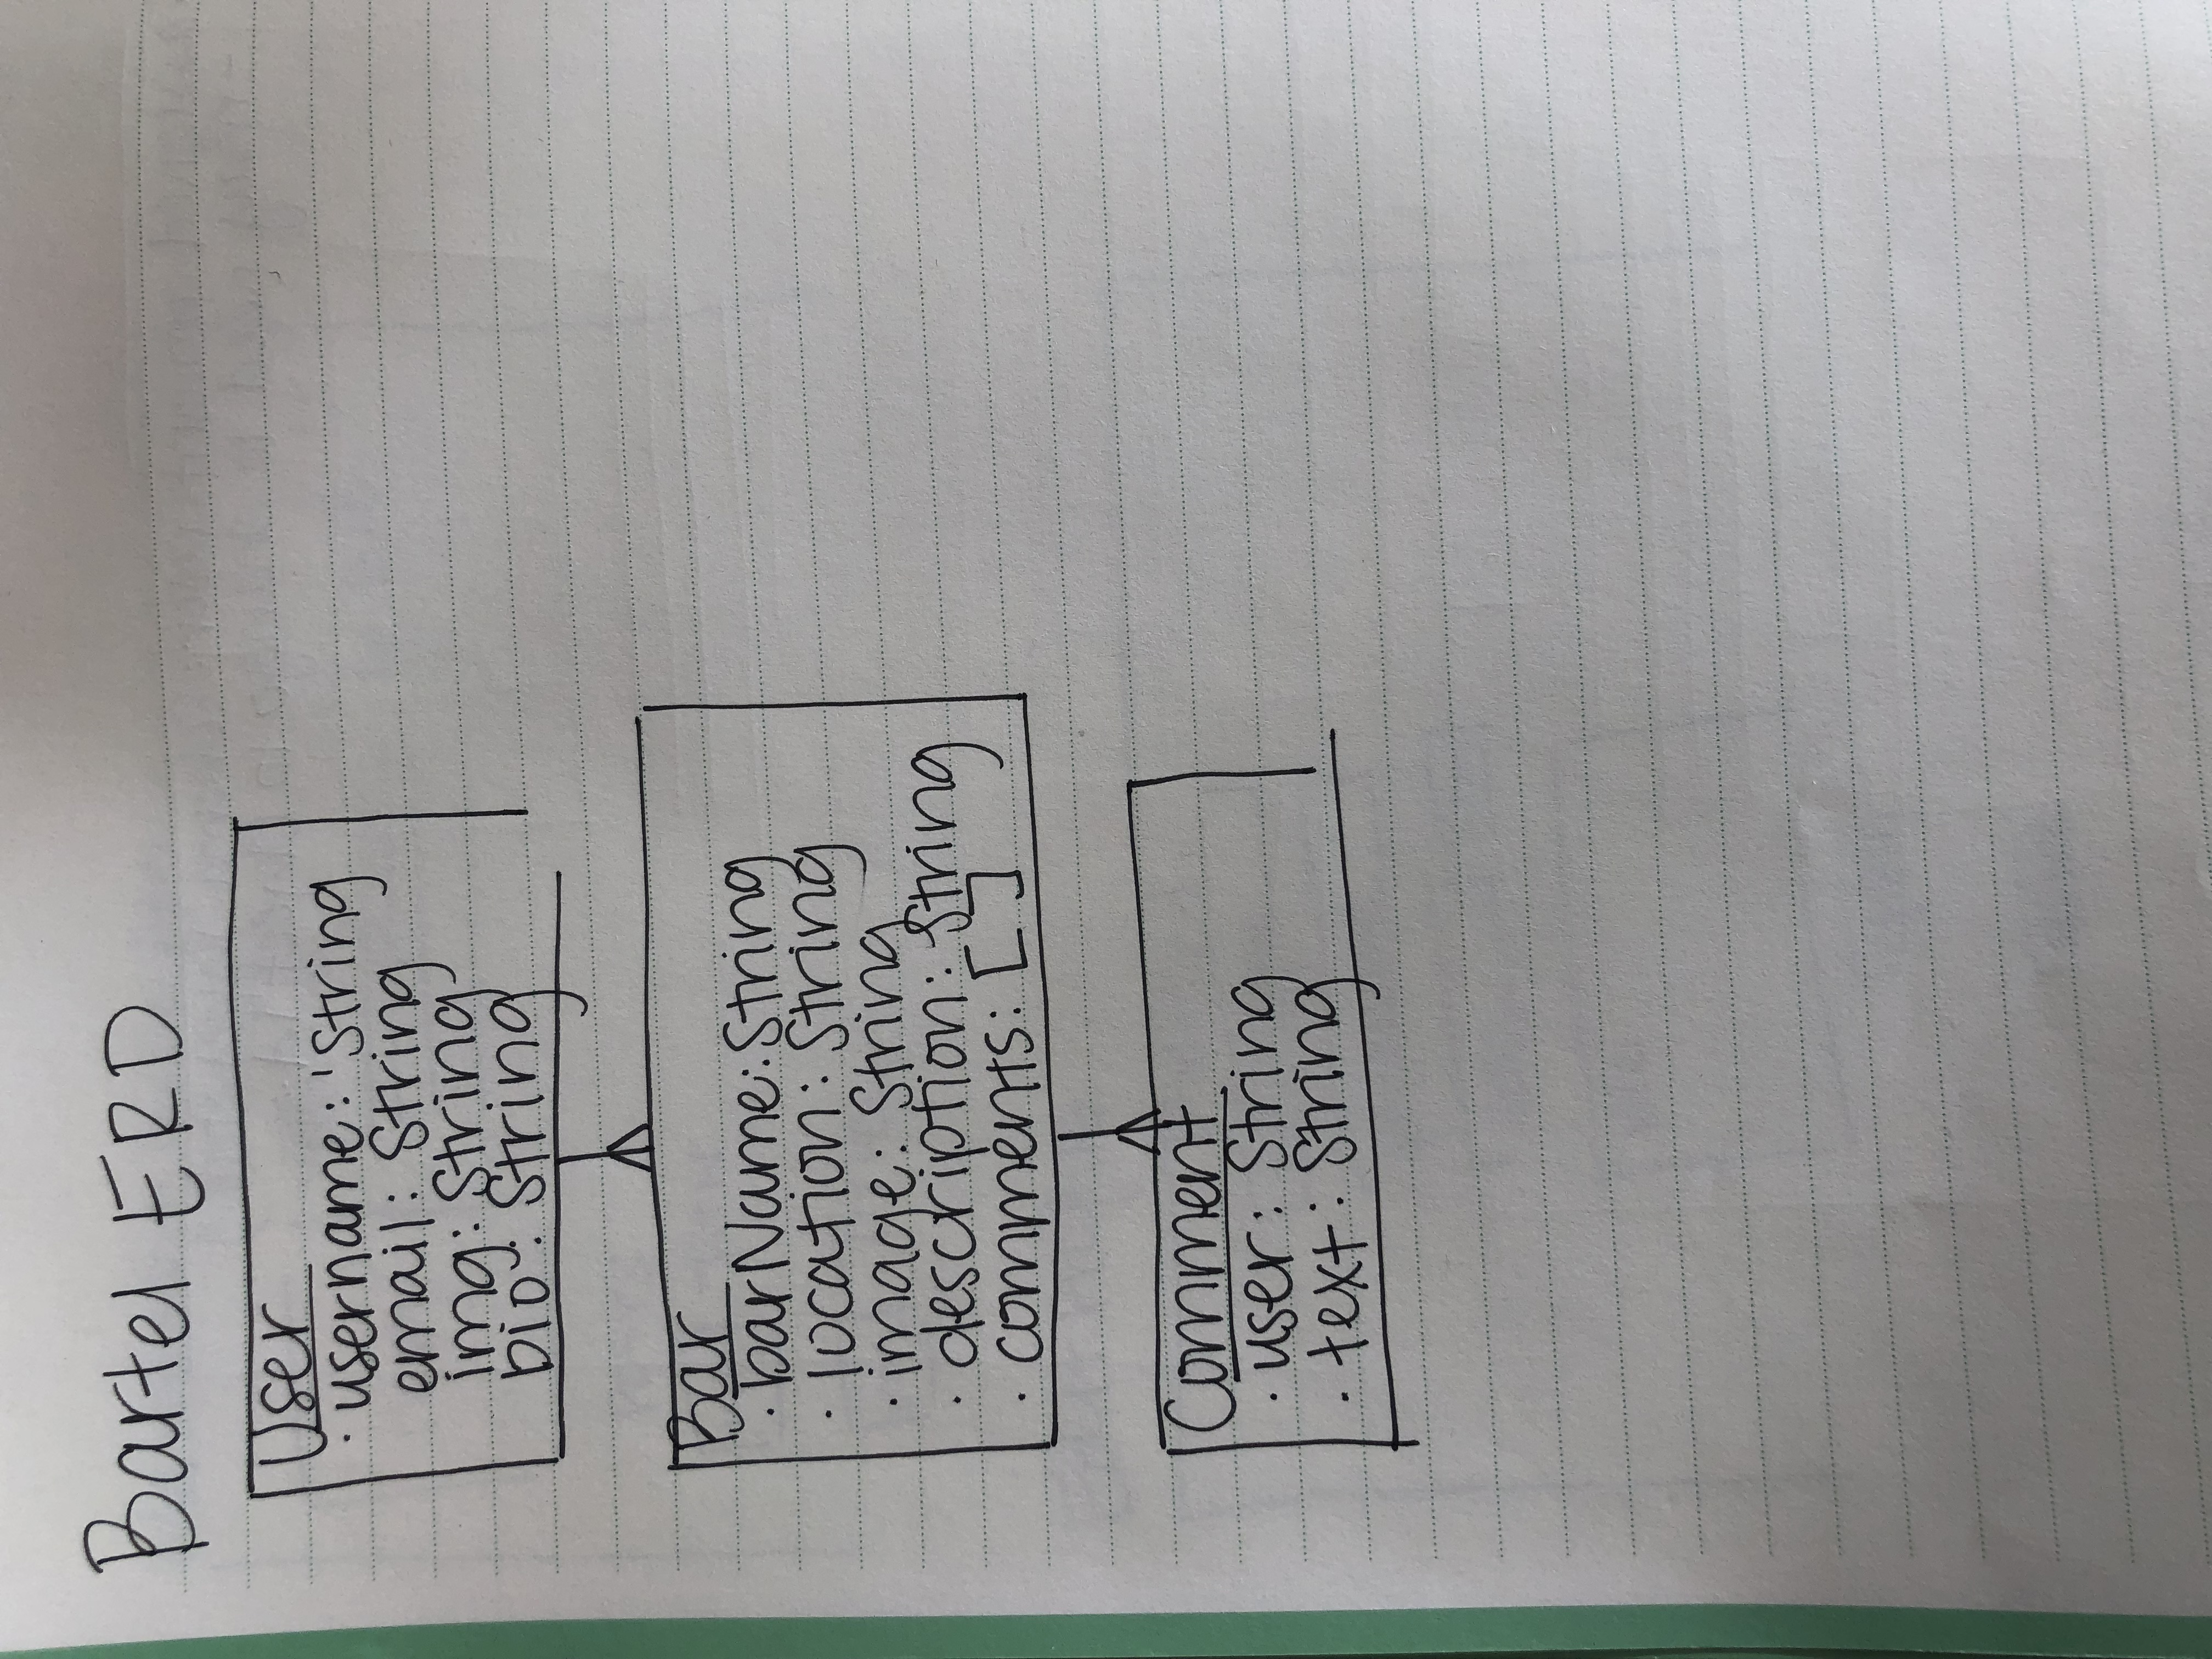 Bartel ERD
User
· username: 'String
email: String
img: String
bio: String
Bar
· barName: String
· location: String
· image: String
· description: String
· comments: [ ]
Comment
· user: String
· text: String